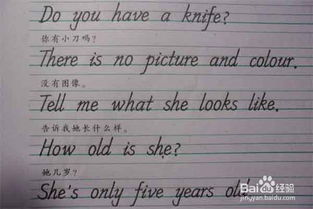 Do you have a knife?
你有小刀吗?
There is no picture and colour.
没有图像。
Tell me what she looks like.
告诉我她长什么样。
How old is she?
她几岁?
She's only five years old.
Bai百度经验
jingyan.baidu.com